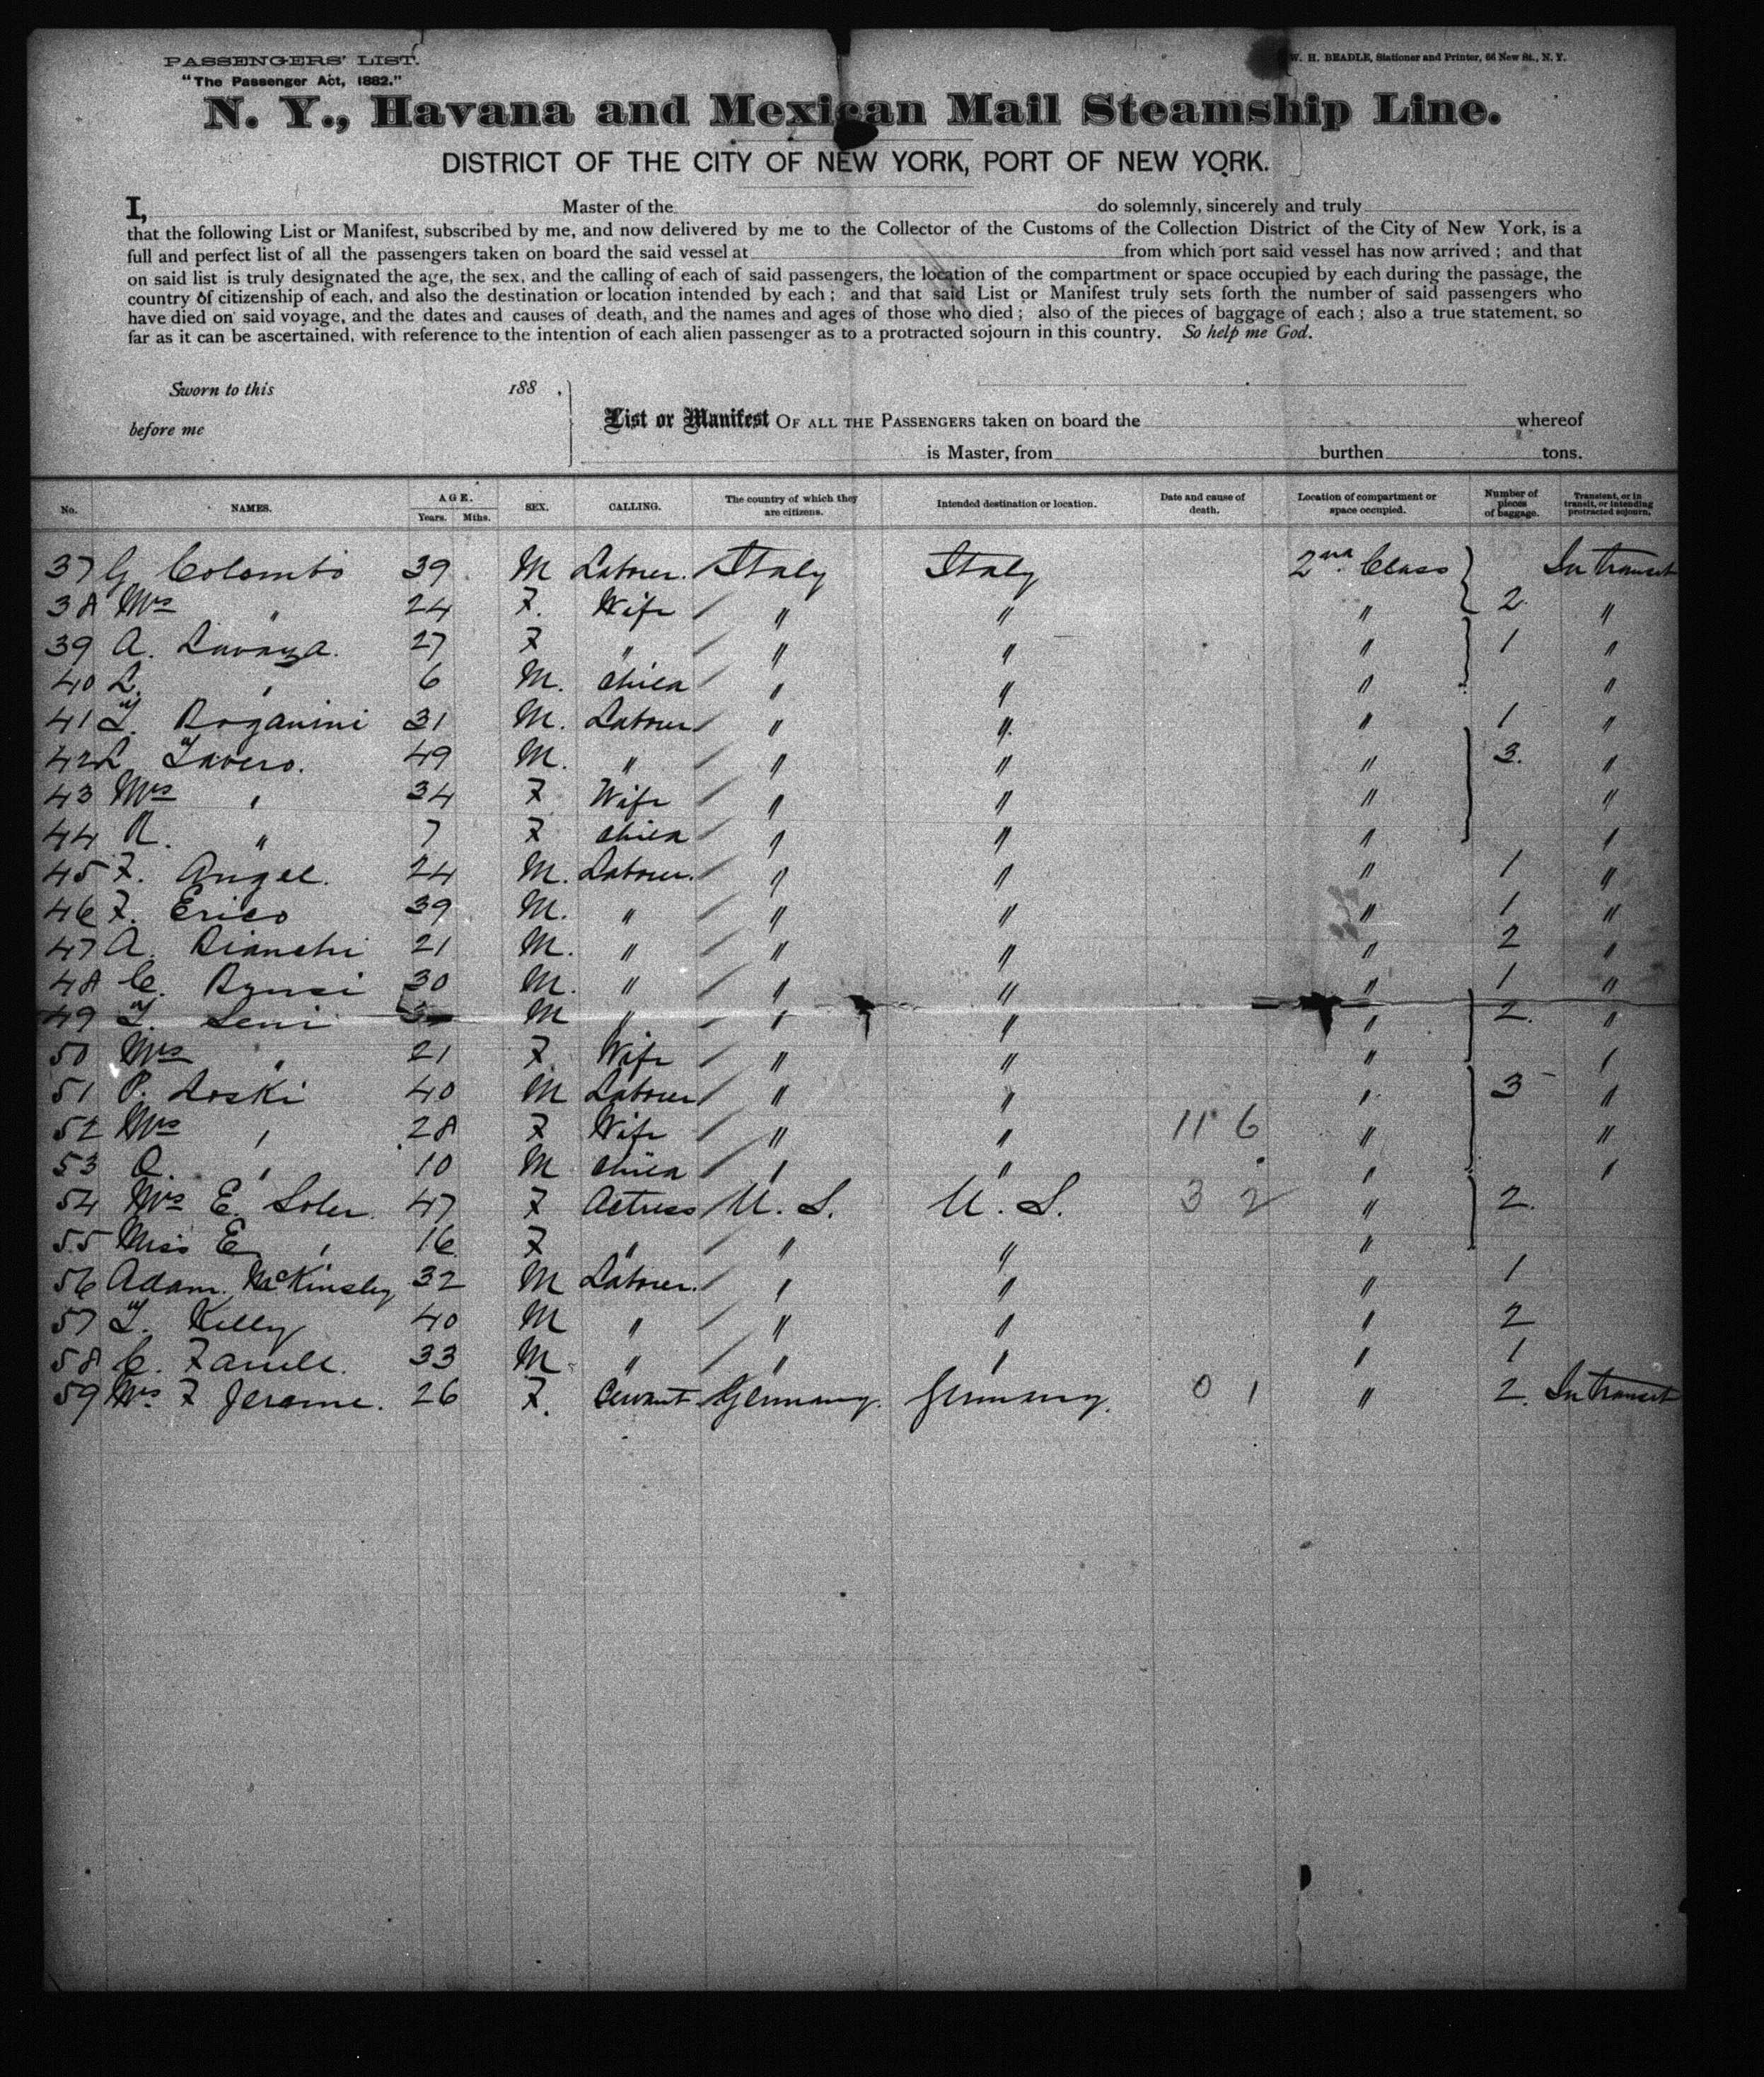 PASSENGERS' LIST.
"The Passenger Act, 1882."
W. H. BEADLE, Stationer and Printer, 66 New St., N. Y.
N. Y., Havana and Mexican Mail Steamship Line.
DISTRICT OF THE CITY OF NEW YORK, PORT OF NEW YORK.
I, Master of the do solemnly, sincerely and truly
that the following List or Manifest, subscribed by me, and now delivered by me to the Collector of the Customs of the Collection District of the City of New York, is a
full and perfect list of all the passengers taken on board the said vessel at from which port said vessel has now arrived; and that
on said list is truly designated the age, the sex, and the calling of each of said passengers, the location of the compartment or space occupied by each during the passage, the
country of citizenship of each, and also the destination or location intended by each; and that said List or Manifest truly sets forth the number of said passengers who
have died on said voyage, and the dates and causes of death, and the names and ages of those who died; also of the pieces of baggage of each; also a true statement, so
far as it can be ascertained, with reference to the intention of each alien passenger as to a protracted sojourn in this country. So help me God.
Sworn to this 188 .
before me
List or Manifest OF ALL THE PASSENGERS taken on board the whereof
is Master, from burthen tons.
No. NAMES. AGE. Years. Mths. SEX. CALLING. The country of which they are citizens. Intended destination or location. Date and cause of death. Location of compartment or space occupied. Number of pieces of baggage. Transient, or in transit, or intending protracted sojourn.
37 G. Colombo 39 M Labour. Italy Italy 2nd Class In transit
38 Mrs " 24 F. Wife " " " 2 "
39 A. 27 F " " " " 1 "
40 L. " 6 M. child " " " "
41 31 M. Labour " " " 1 "
42 L. 49 M. " " " " 3. "
43 Mrs " 34 F Wife " " " "
44 R. " 7 F child " " " "
45 F. Angel. 24 M. Labour. " " " 1 "
46 F. Erico 39 M. " " " " 1 "
47 A. Bianchi 21 M. " " " " 2 "
48 C. 30 M. " " " " 1 "
49 Leni M " " " " 2. "
50 Mrs " 21 F Wife " " " "
51 P. Loski 40 M Labour " " " 3 "
52 Mrs " 28 F Wife " " 11 6 " "
53 O. " 10 M child " " " "
54 Mrs E. Soler. 47 F Actress U. S. U. S. 3 2 " 2.
55 Miss E. " 16 F " " " "
56 Adam McKinsley 32 M Labour. " " " 1
57 Kelly 40 M " " " " 2
58 C. 33 M " " " " 1
59 Mrs F Jerome. 26 F. Servant Germany. Germany. 0 1 " 2. In transit